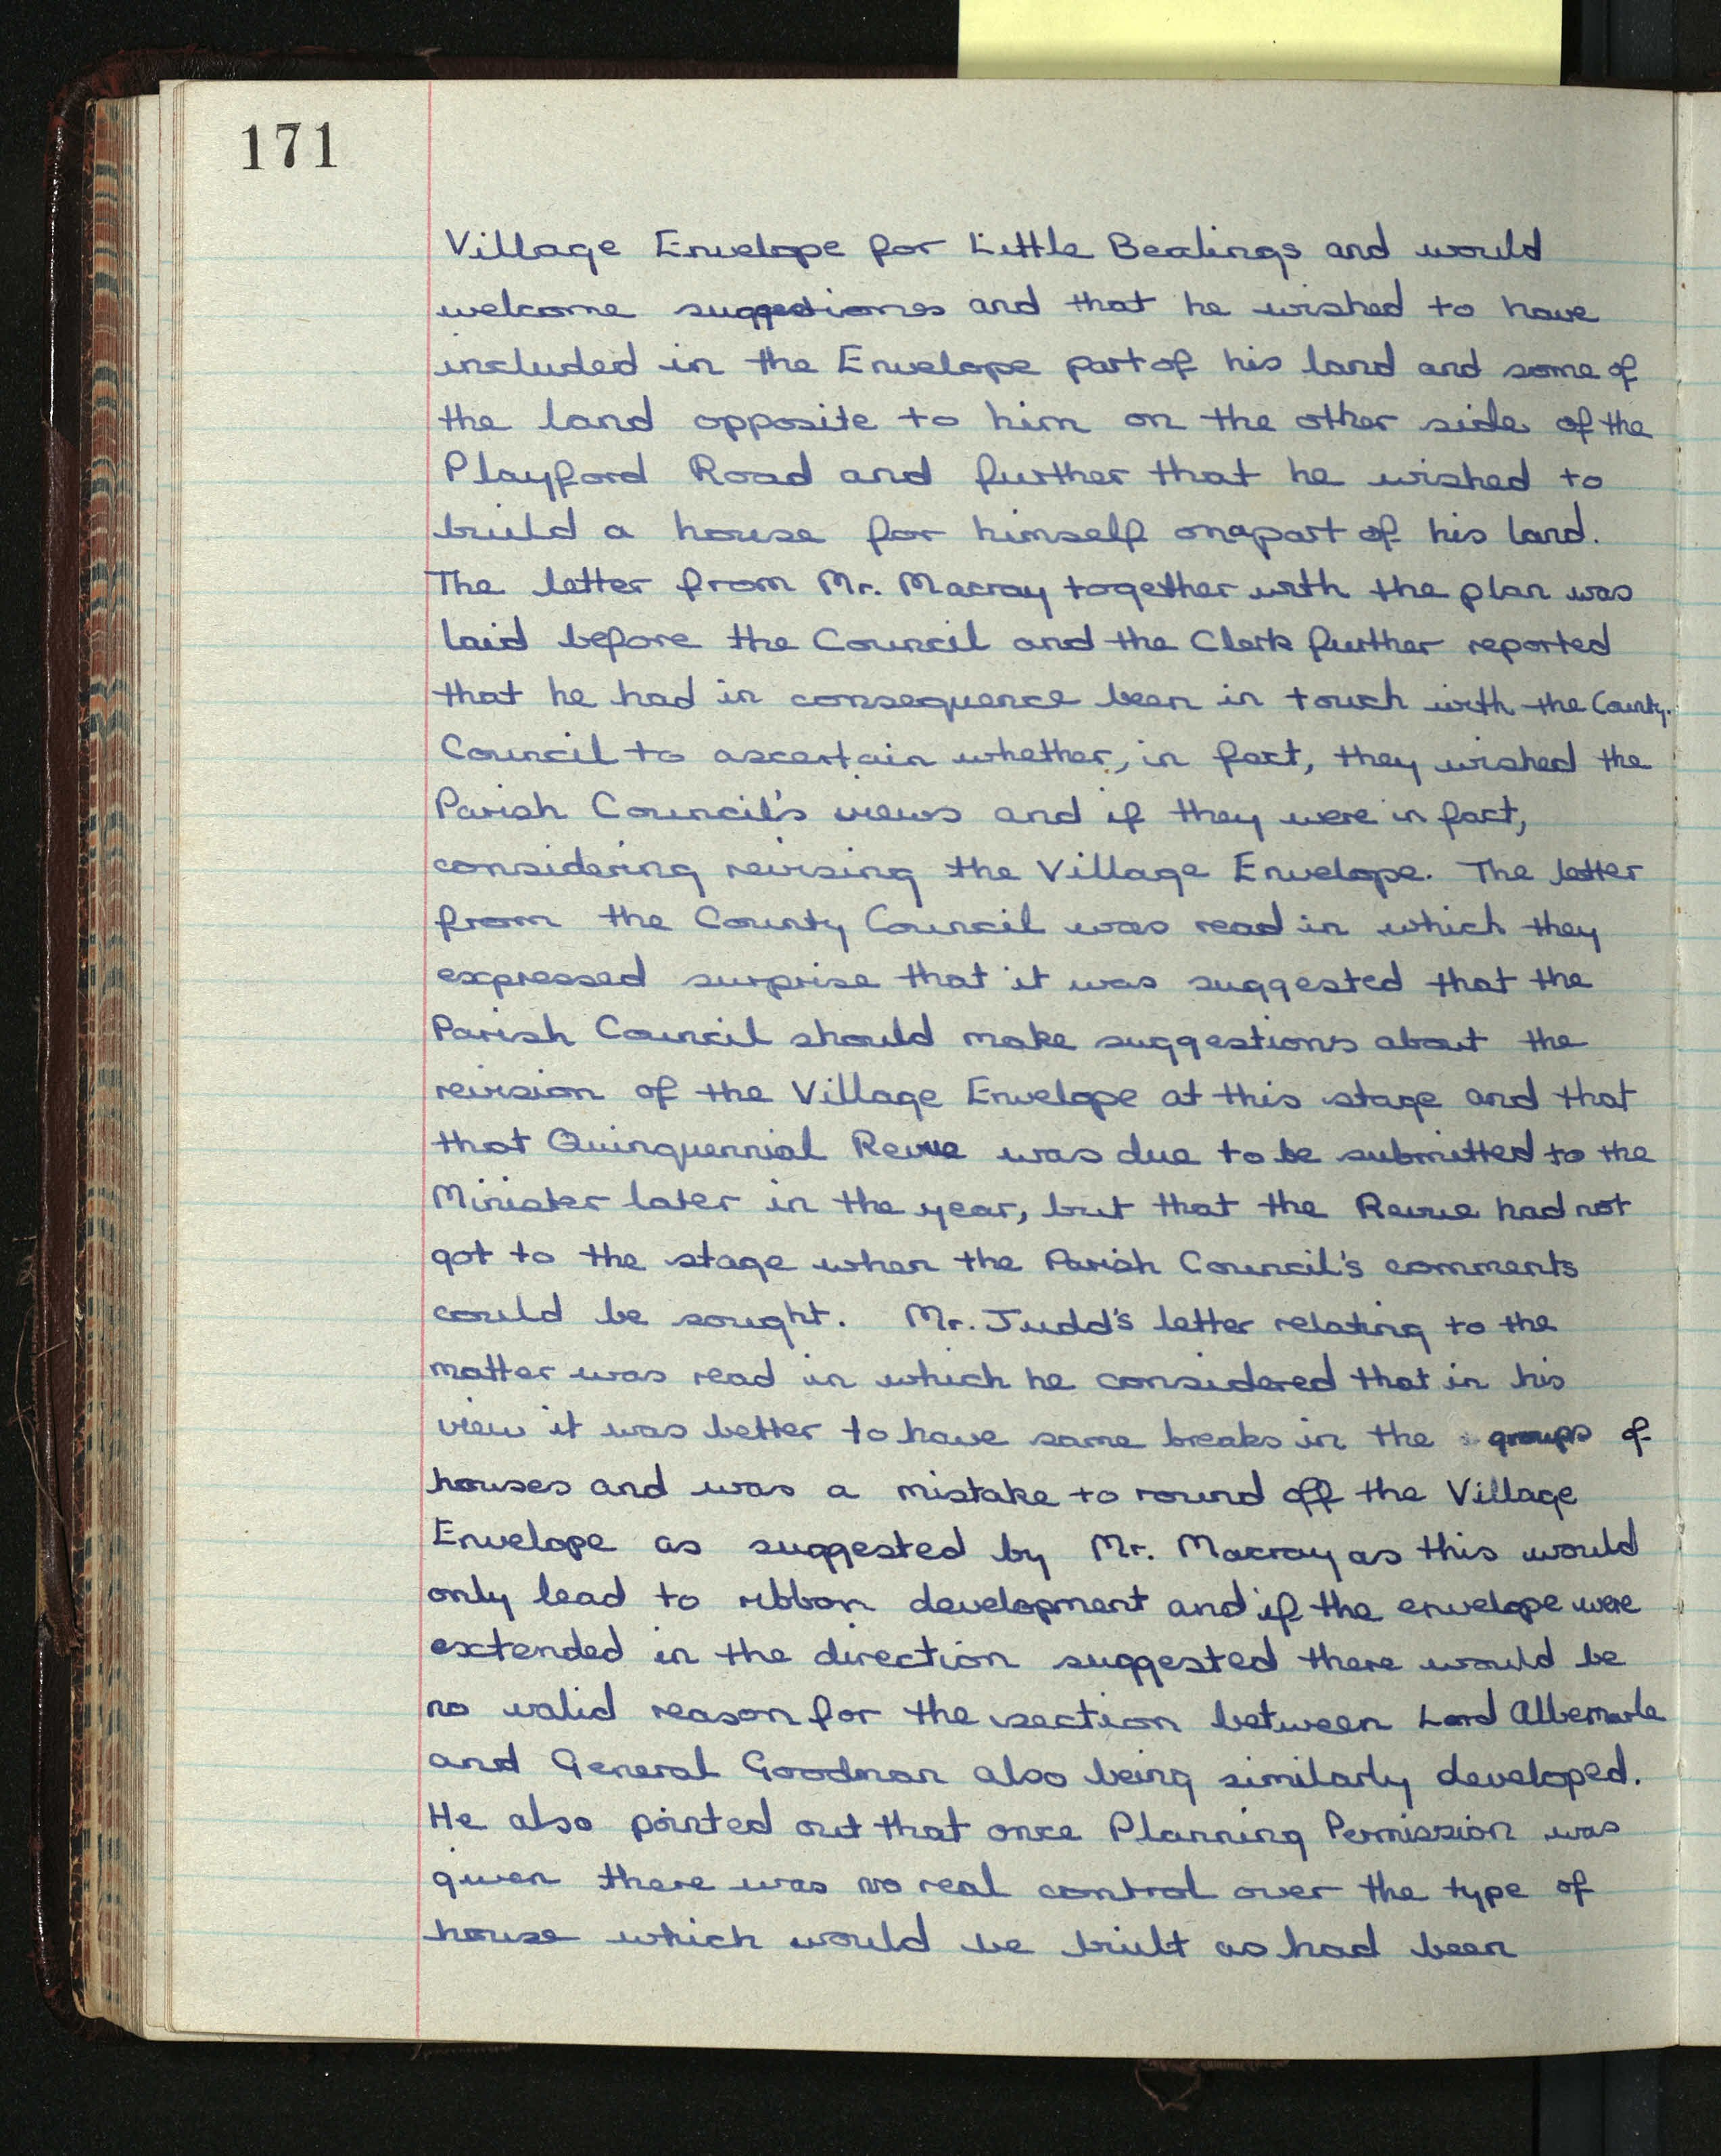 171
Village Envelope for Little Bealings and would
welcome suggestiones and that he wished to have
included in the Envelope part of his land and some of
the land opposite to him on the other side of the
Playford Road and further that he wished to
build a house for himself on a part of his land.
The letter from Mr. Macray together with the plan was
laid before the Council and the Clerk further reported
that he had in consequence been in touch with the County.
Council to ascertain whether, in fact, they wished the
Parish Council's views and if they were in fact,
considering revising the Village Envelope. The letter
from the County Council was read in which they
expressed surprise that it was suggested that the
Parish Council should make suggestions about the
revision of the Village Envelope at this stage and that
that Quinquennial Revue was due to be submitted to the
Minister later in the year, but that the Revue had not
got to the stage when the Parish Council's comments
could be sought. Mr. Judd's letter relating to the
matter was read in which he considered that in his
view it was better to have some breaks in the groups of
houses and was a mistake to round off the Village
Envelope as suggested by Mr. Macray as this would
only lead to ribbon development and if the envelope were
extended in the direction suggested there would be
no valid reason for the section between Lord Albemarle
and General Goodman also being similarly developed.
He also pointed out that once Planning Permission was
given there was no real control over the type of
house which would be built as had been